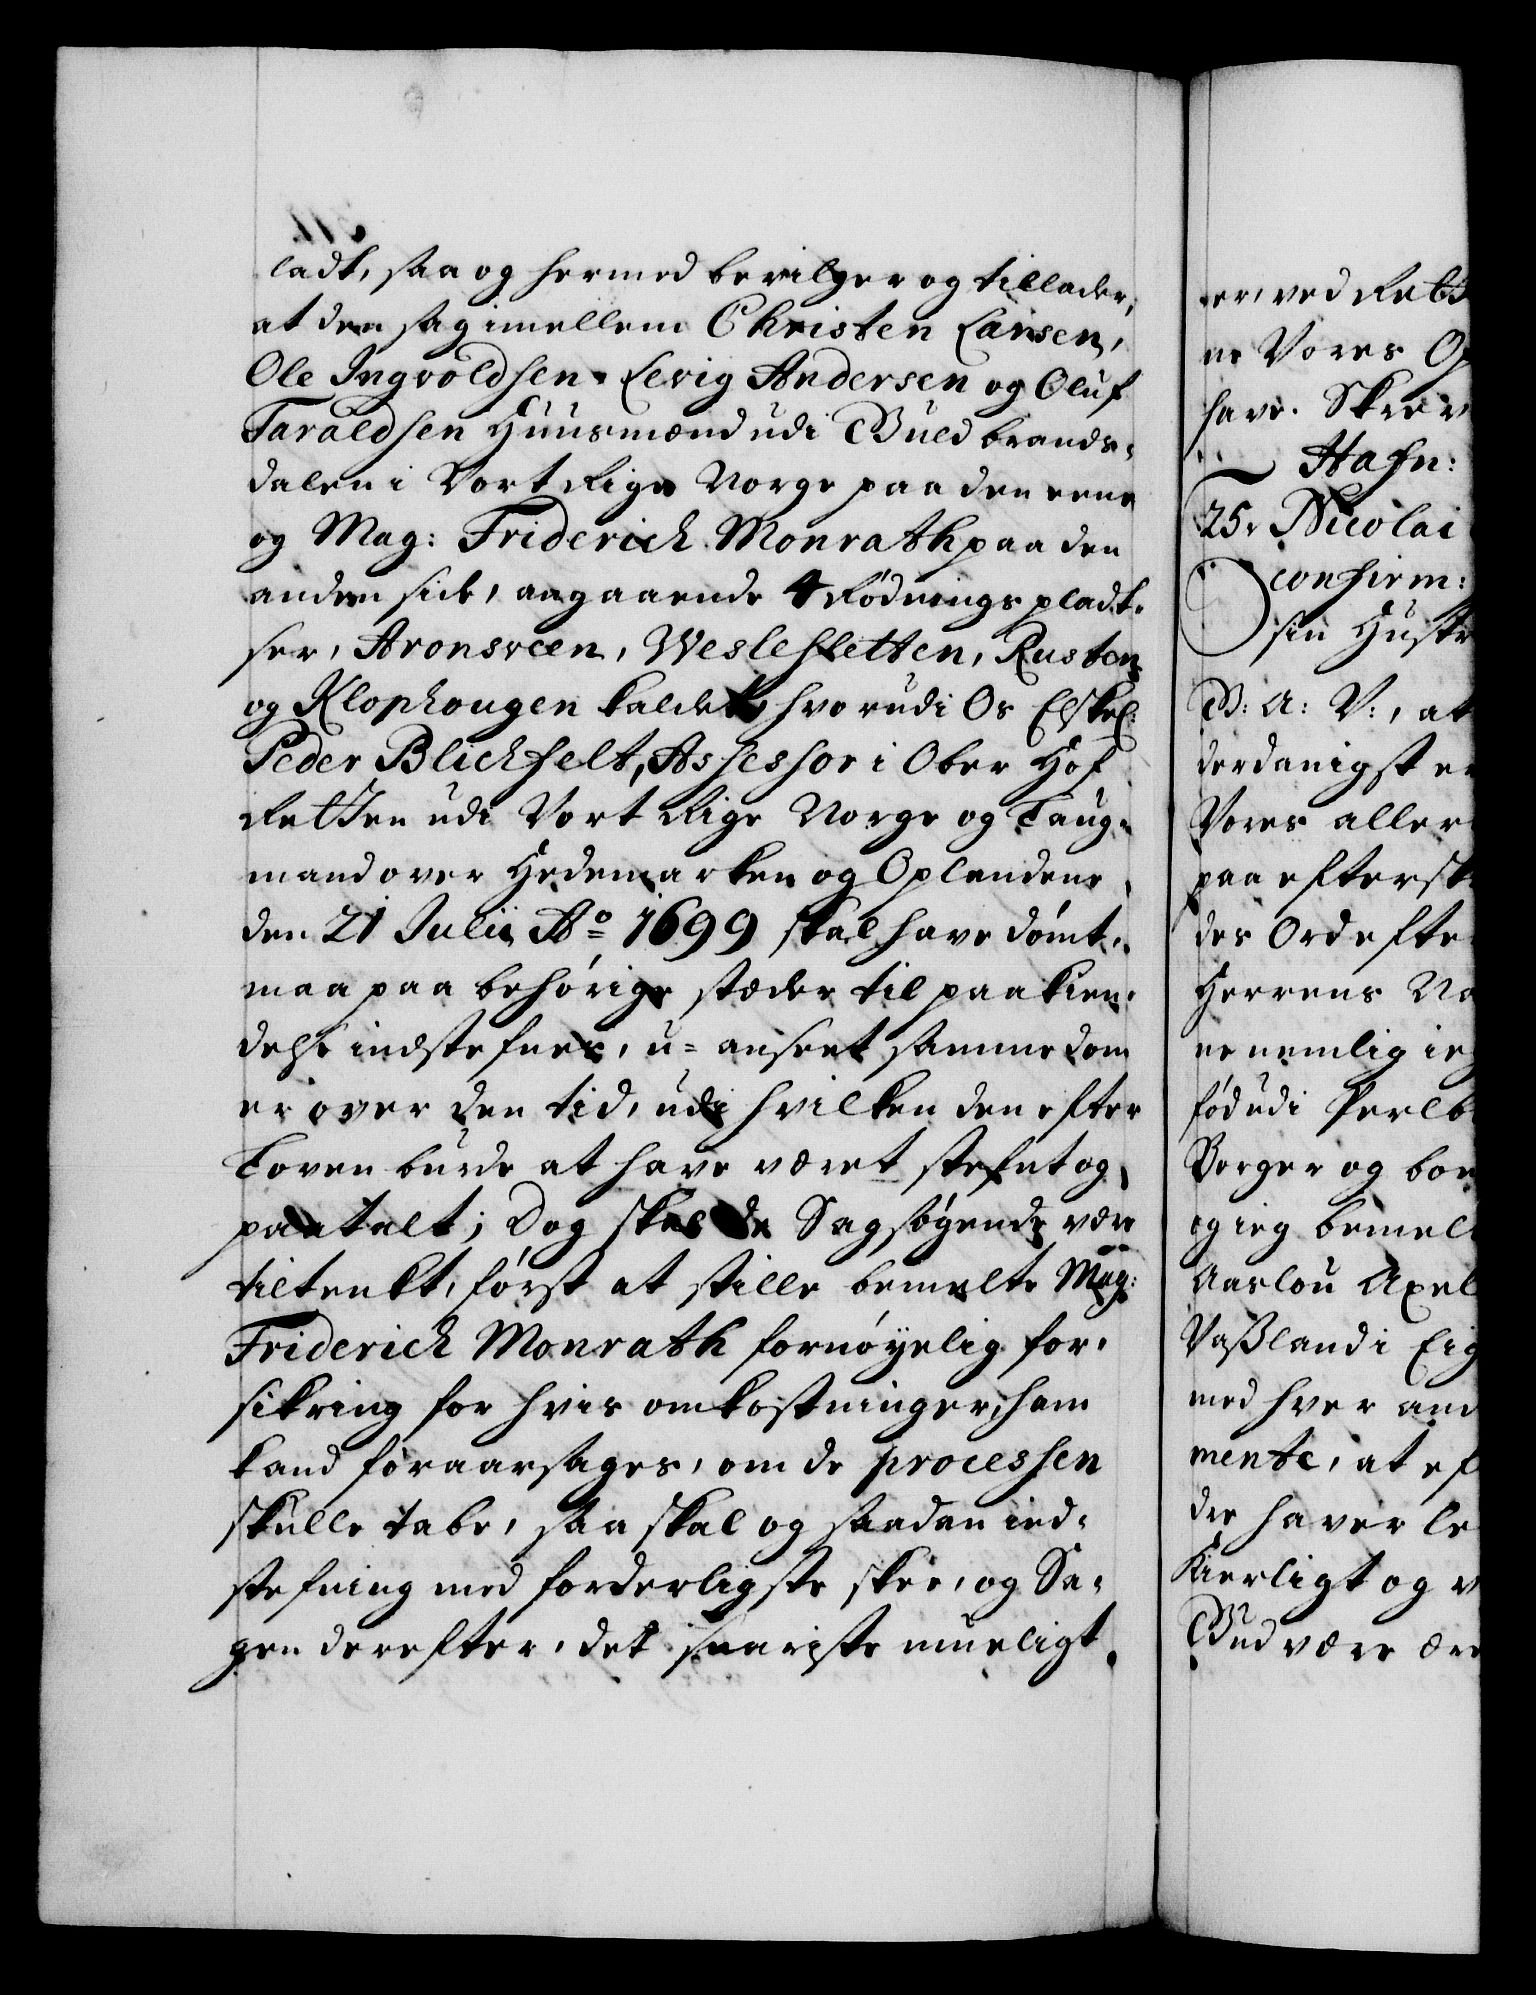 ladt, saa og hermed bevilger og tillader,
at den sag imellem Christen Larsen,
Ole Ingvoldsen Levig Andersen og Oluf
Taraldsen Huusmænd udi Guldbrands-
dalen i Vort Rige Norge paa den eene
og Mag: Friderich Monrath paa den
anden side, angaaende 4 Rødnings plad-
ser, Aronsveen, Weslesletten, Rusten
og Klophougen kaldet, hvorudi Os Elskel:
Peder Blichfelt, Assessor i Ober Hof
Retten udi Vort Rige Norge og Laug-
mand over Hedemarken og Oplandene
den 21 Julii Ao 1699 skal have dømt,
maa paa behørige stæder til paakien-
delse indstefnes, u-anseet samme dom
er over den tid, udi hvilken den efter
Loven burde at have været stefnt og
paatalt; Dog skal de Sagsøgende være
tiltenkt, først at stille bemelte Mag:
Friderich Monrath fornøyelig for-
sikring for hvis omkostninger, ham
kand foraarsages, om de processen
skulle tabe, saa skal og saadan ind-
stefning med forderligste skee, og Sa-
gen derefter, det snariste mueligt
er, ved Rett
ne Vores Op
have. Skrev
Hafn:
25. Nicolai
confirm:
sin Hustr
G: A: V:, at
derdanigst er
Vores aller
paa efterst
des Ord efte
Herrens Na
ne nemlig ieg
fød udi Perlb
Borger og boe
og ieg bemel
Aaslou Axel
Vaßland i Eig
med hver and
mente, at ef
der haver le
Kierligt og v
Gud være ære